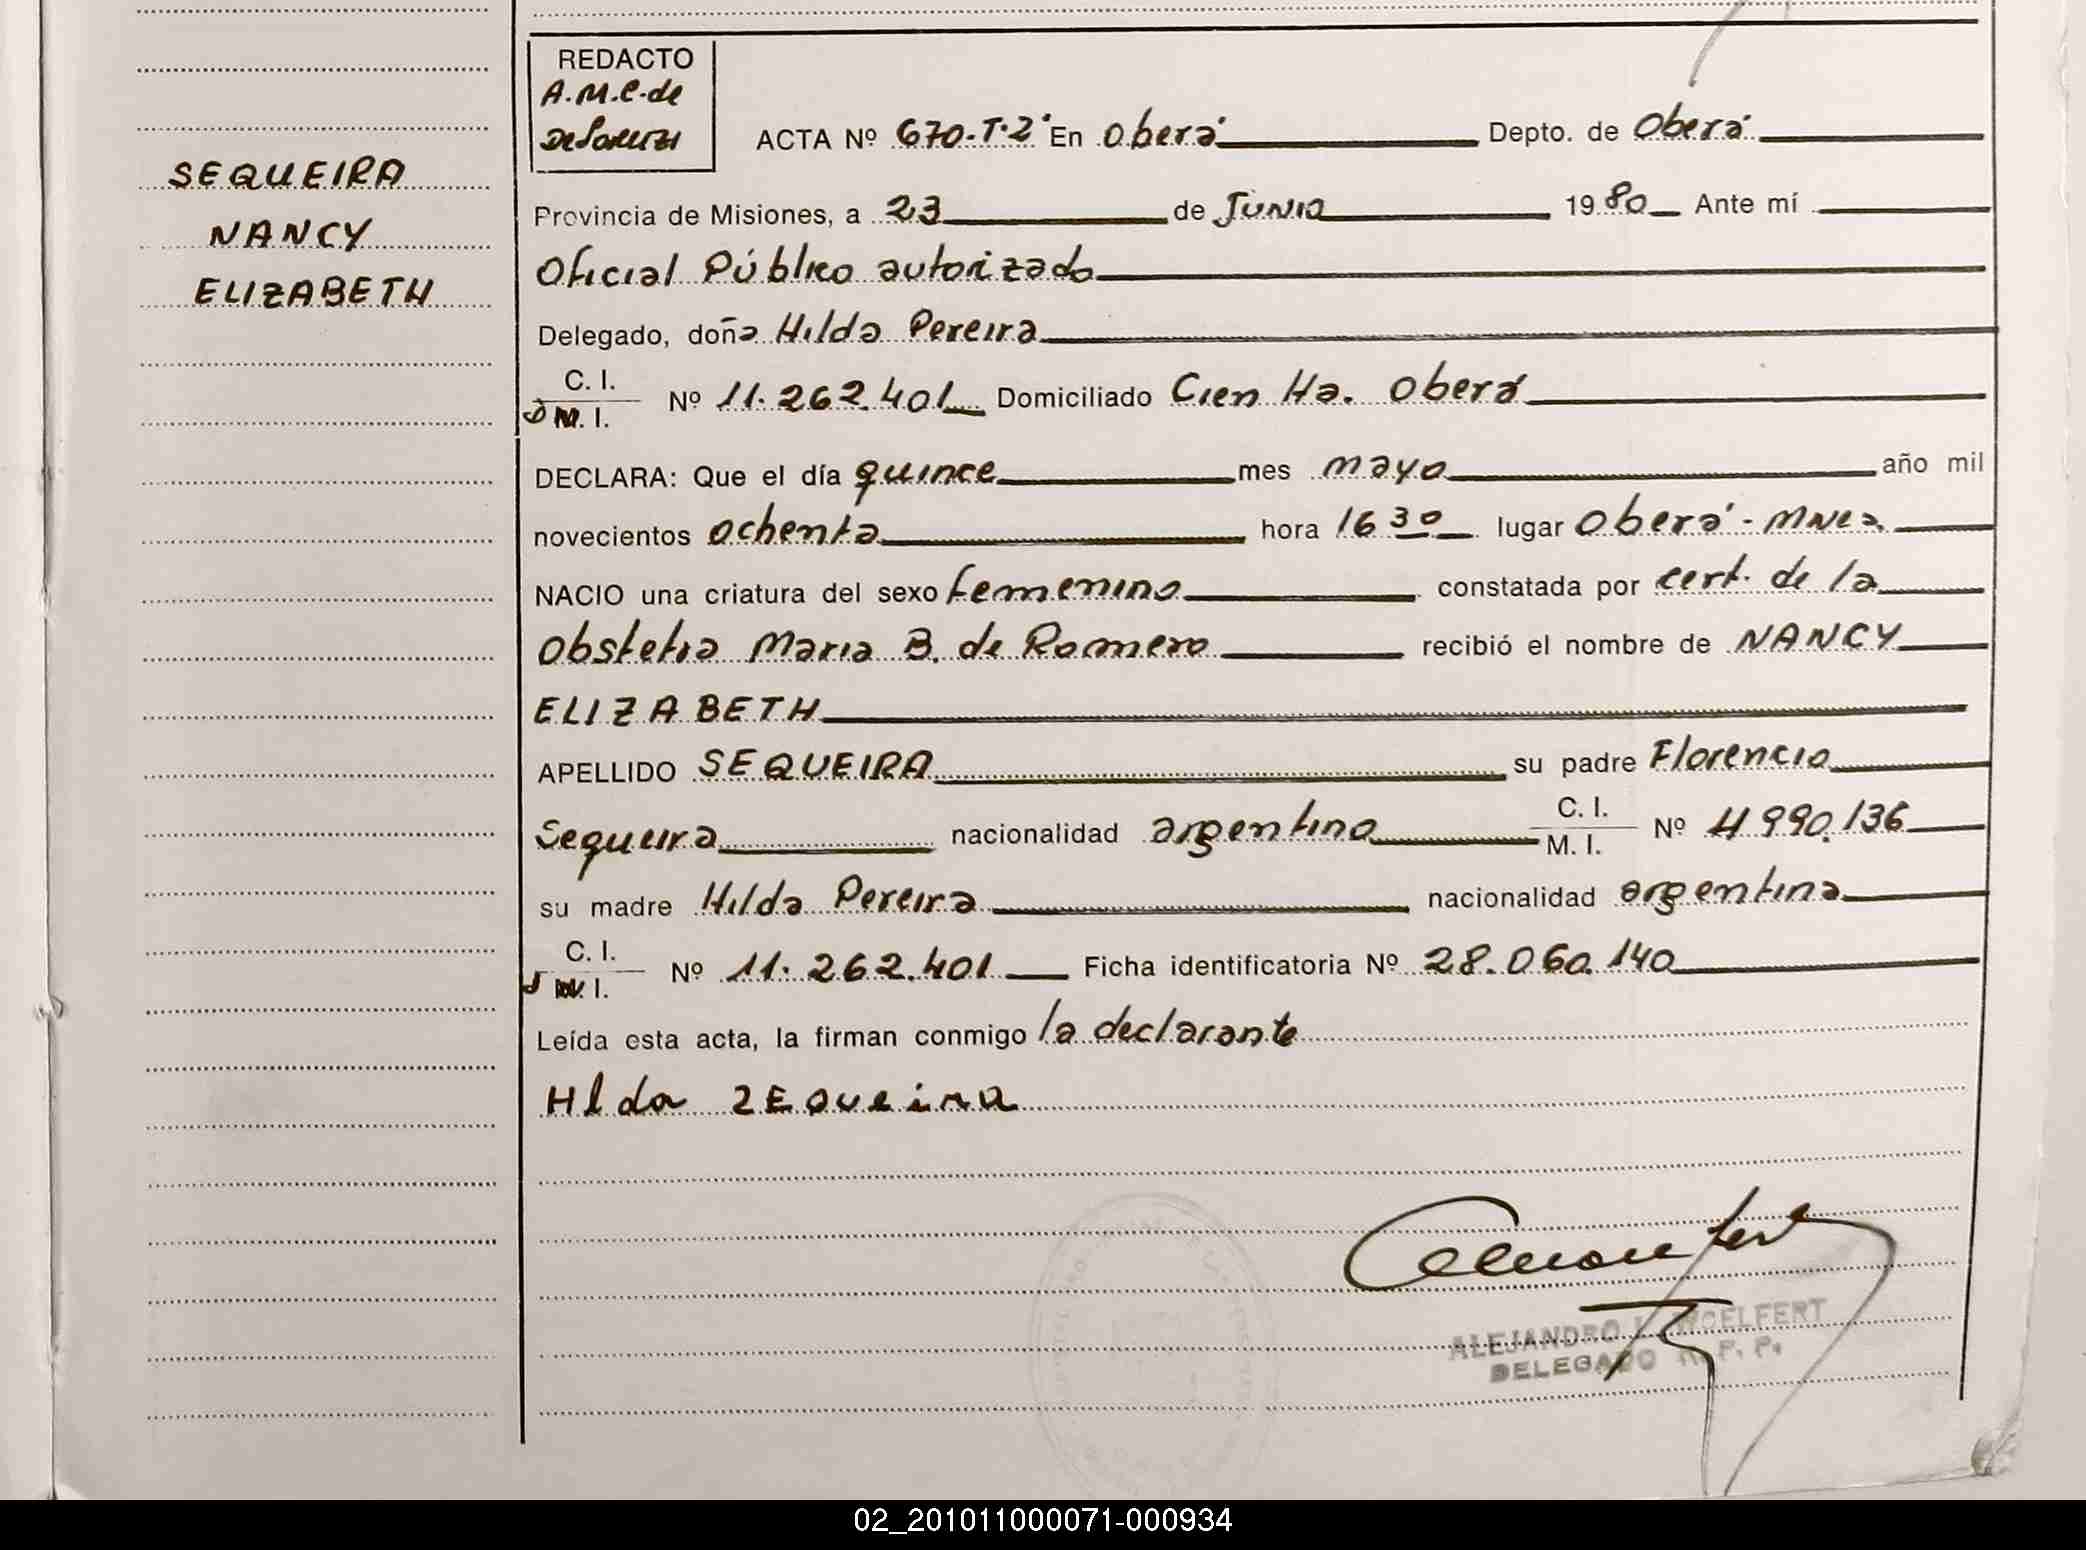 REDACTO
A.M.C. de
SEQUEIRA
NANCY
ELIZABETH
ACTA Nº 670-T.2° En Oberá Depto. de Oberá
Provincia de Misiones, a 23 de Junio 1980 Ante mí
Oficial Público autorizado
Delegado, doña Hilda Pereira
C. I.
D M. I. Nº 11.262.401 Domiciliado Cien Ha. Oberá
DECLARA: Que el día quince mes mayo año mil
novecientos ochenta hora 16 30 lugar Oberá - Mnes
NACIO una criatura del sexo femenino constatada por cert. de la
Obstetra Maria B. de Romero recibió el nombre de NANCY
ELIZABETH
APELLIDO SEQUEIRA su padre Florencio
Sequeira nacionalidad argentino C. I. M. I. Nº 4.990.136
su madre Hilda Pereira nacionalidad argentina
C. I.
M. I. Nº 11.262.401 Ficha identificatoria Nº 28.060.140
Leída esta acta, la firman conmigo la declarante
Hlda ZEQueira
ALEJANDRO WOELFERT
DELEGADO R. P. P.
02_201011000071-000934